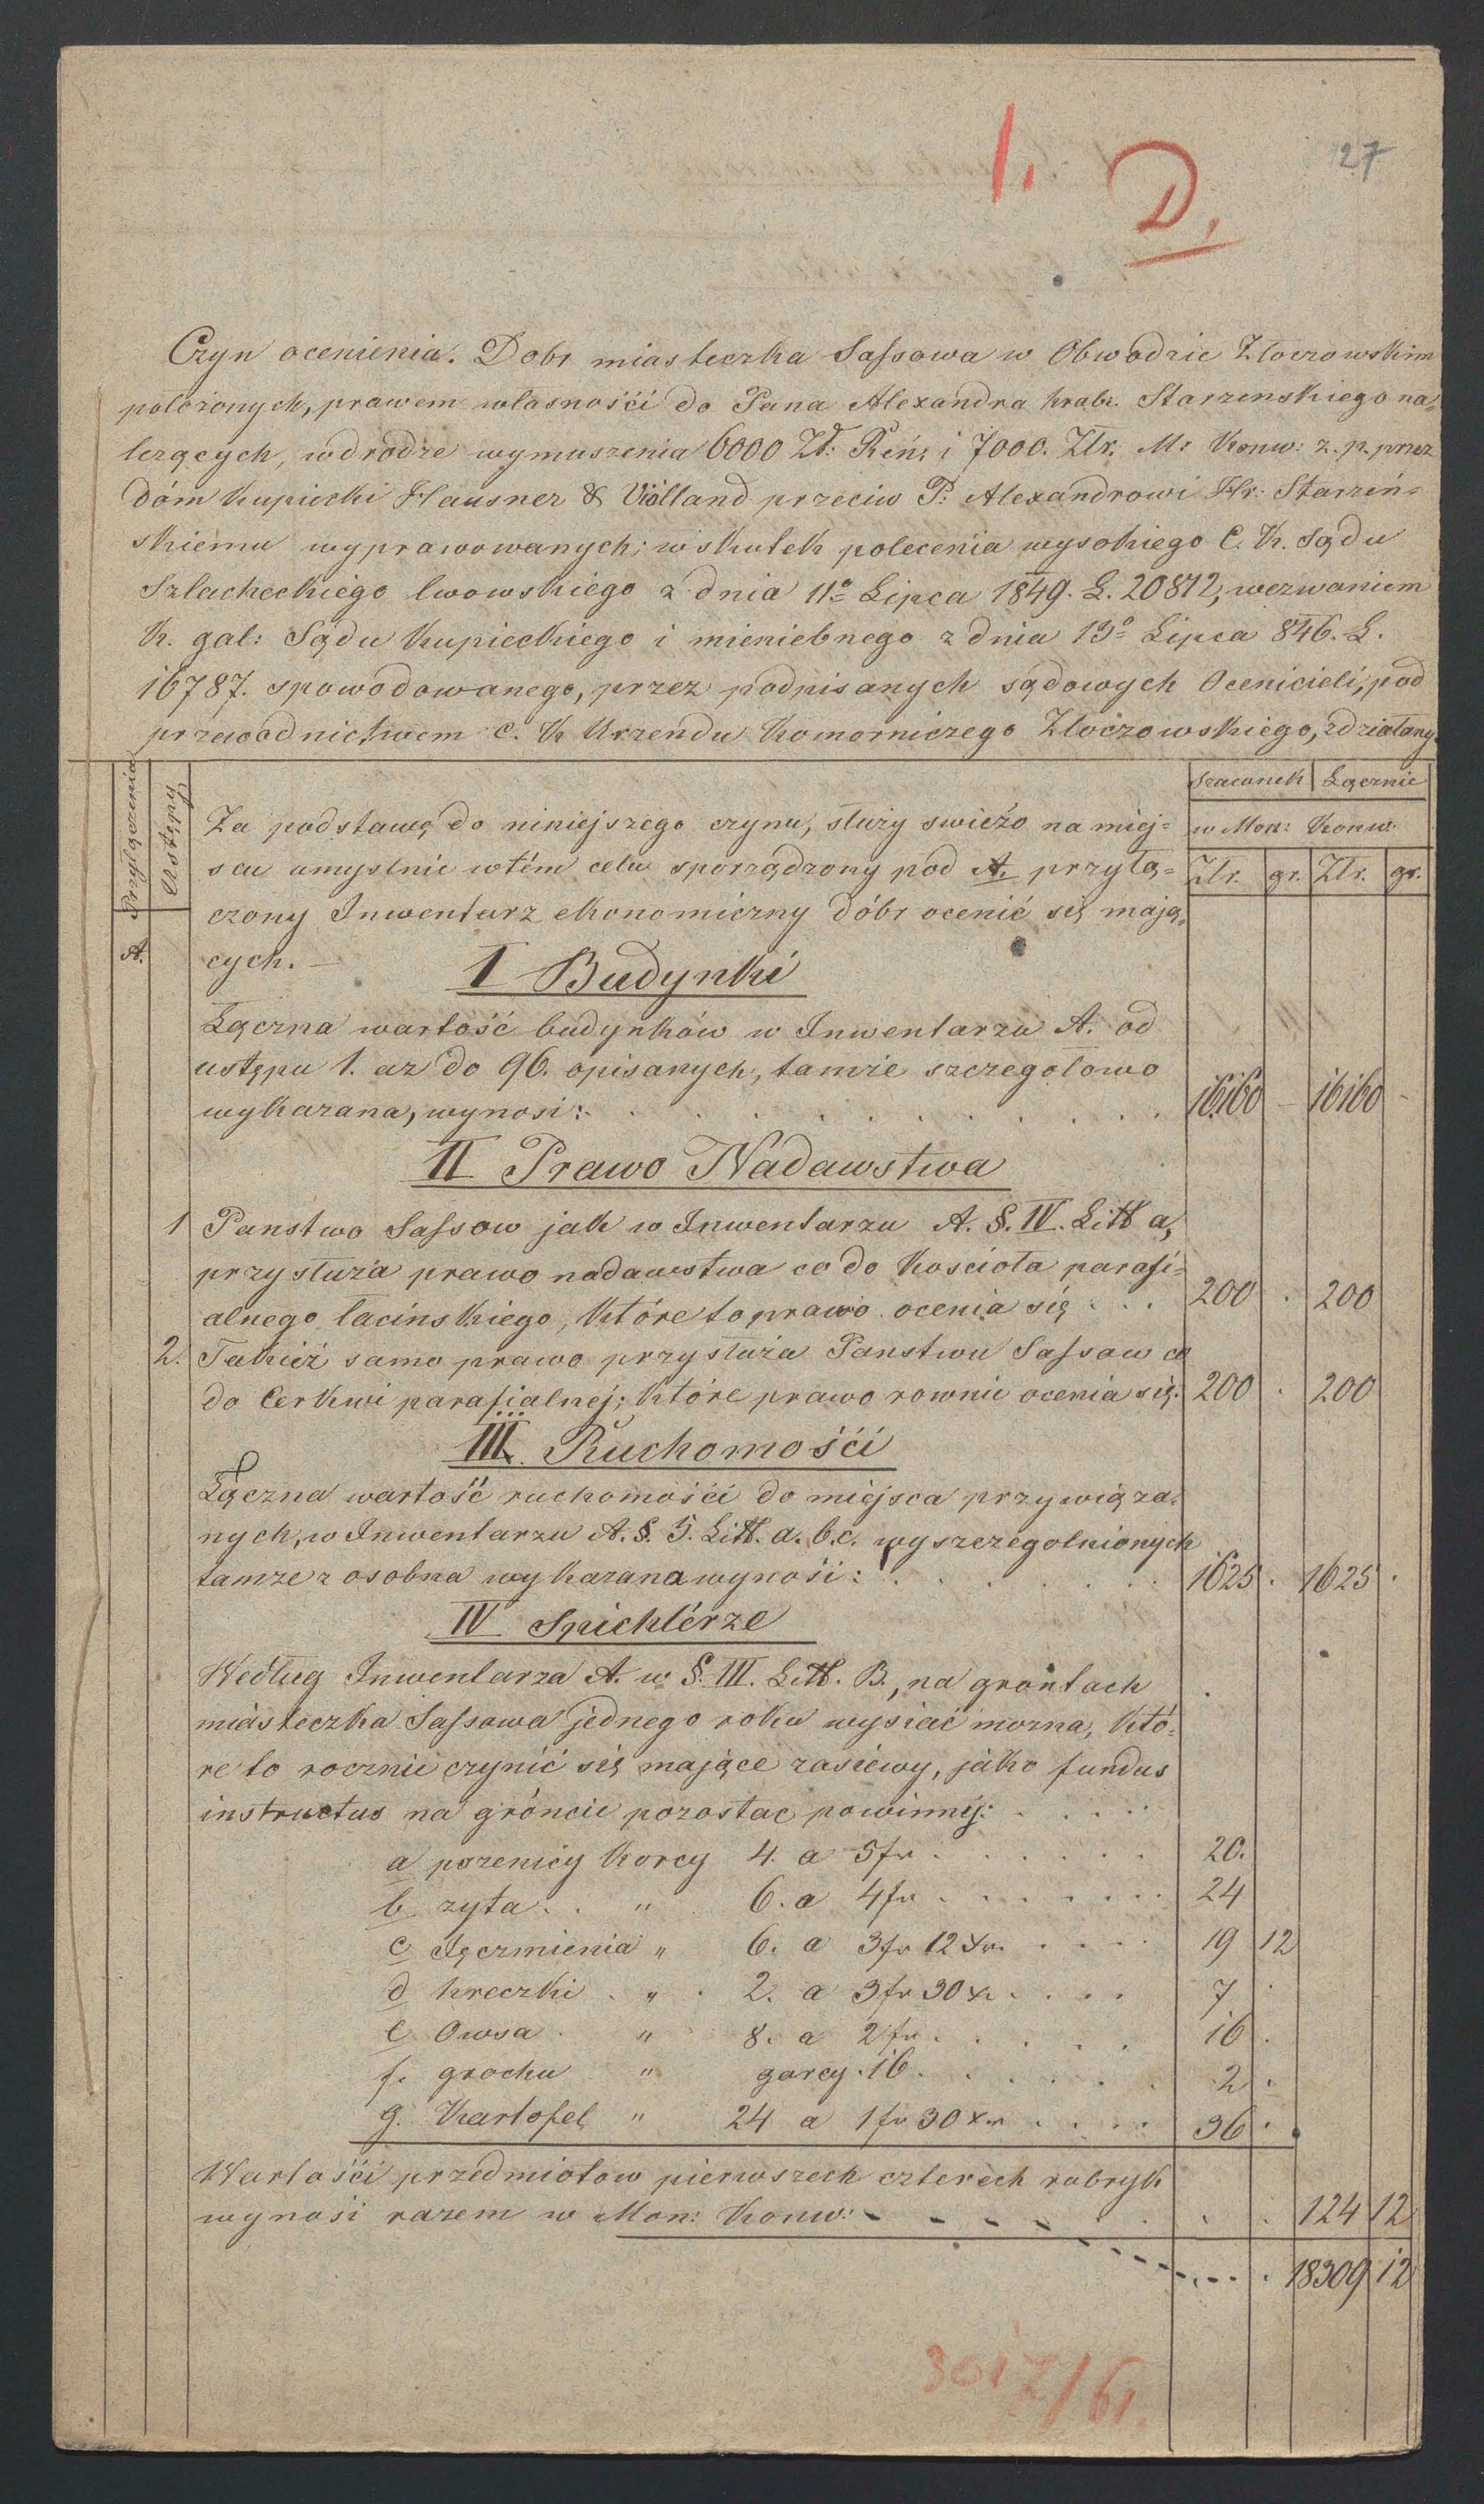 1. D. 27
Czyn ocenienia. Dobr miasteczka Sassowa w Obwodzie Złoczowskim
położonych, prawem własnośći do Pana Alexandra hrab. Starzenskiego na=
lezących, wdrodze wymuszenia 6000 Zł: Reń: i 7000. Złr. M: Konw: z. p. przez
dóm kupiecki Hausner & Violland przeciw P: Alexandrowi Hr: Starzeń=
skiemu wyprawowanych; wskutek polecenia wysokiego C. K. Sądu
Szlacheckiego lwowskiego z dnia 11º Lipca 1849. L. 20812, wezwaniem
K. gal: Sądu Kupieckiego i mieniebnego z dnia 13º Lipca 846. L.
16787. spowodowanego, przez podpisanych sądowych Ocenicieli, pod
przewodnictwem c. K Urzendu Komorniczego Złoczowskiego, zdziałany.
Przyłączenia Ustępy Szacunek Łącznie
Za podstawę do niniejszego czynu, służy swieżo na miej= w Mon: Konw.
scu umyslnie wtém celu sporządzony pod A. przyłą= Złr. gr. Złr. gr.
czony Inwentarz ekonomiczny dóbr ocenić się mają=
A. cych. —
I Budynki
Łączna wartość budynków w Inwentarzu A. od
ustępu 1. az do 96. opisanych, tamże szczegołowo
wykazana, wynosi: . . . 16160 — 16160 -
II Prawo Nadawstwa
1 Panstwo Sassow jak w Inwentarzu A. §. IV. Litt a,
przysłuża prawo nadawstwa co do Kościoła parafi=
alnego łacinskiego, które to prawo ocenia się . . . 200 . 200
2. Takież samo prawo przysłuża Panstwu Sassow co
do Cerkwi parafialnej; które prawo rownie ocenia się: 200 . 200
III. Ruchomośći
Łączna wartość ruchomośći do miejsca przywiąza=
nych, w Inwentarzu A. §. 5. Litt. a. b. c. wyszczegolnionych
tamze z osobna wykazana wynośi: . . . 1625 . 1625 .
IV Spichlérze
Według Inwentarza A. w §. III. Litt. B., na gróntach
miasteczka Sassowa jednego roku wysiać mozna, któ=
re to rocznie czynić się mające zasiewy, jako fundus
instructus na gróncie pozostac powinny: . . . .
a pszenicy korcy 4. a 5fr . . . 20.
b zyta . . " 6. a 4fr . . . 24
c Jęczmienia " 6. a 3fr 12 Xr. . . . 19 12
d hreczki . " . 2. a 3fr 30 x . . . 7 .
e Owsa . " 8. a 2fr . . . 16 .
f. grochu " garcy . 16 . . . 2 .
g. Kartofel " 24 a 1fr 30 xr . . . 36 .
Wartośći przedmiotow pierwszech czterech rubryk
wynosi razem w Mon: Konw: - - - - . . . 124 12
18309 12
3017/61.